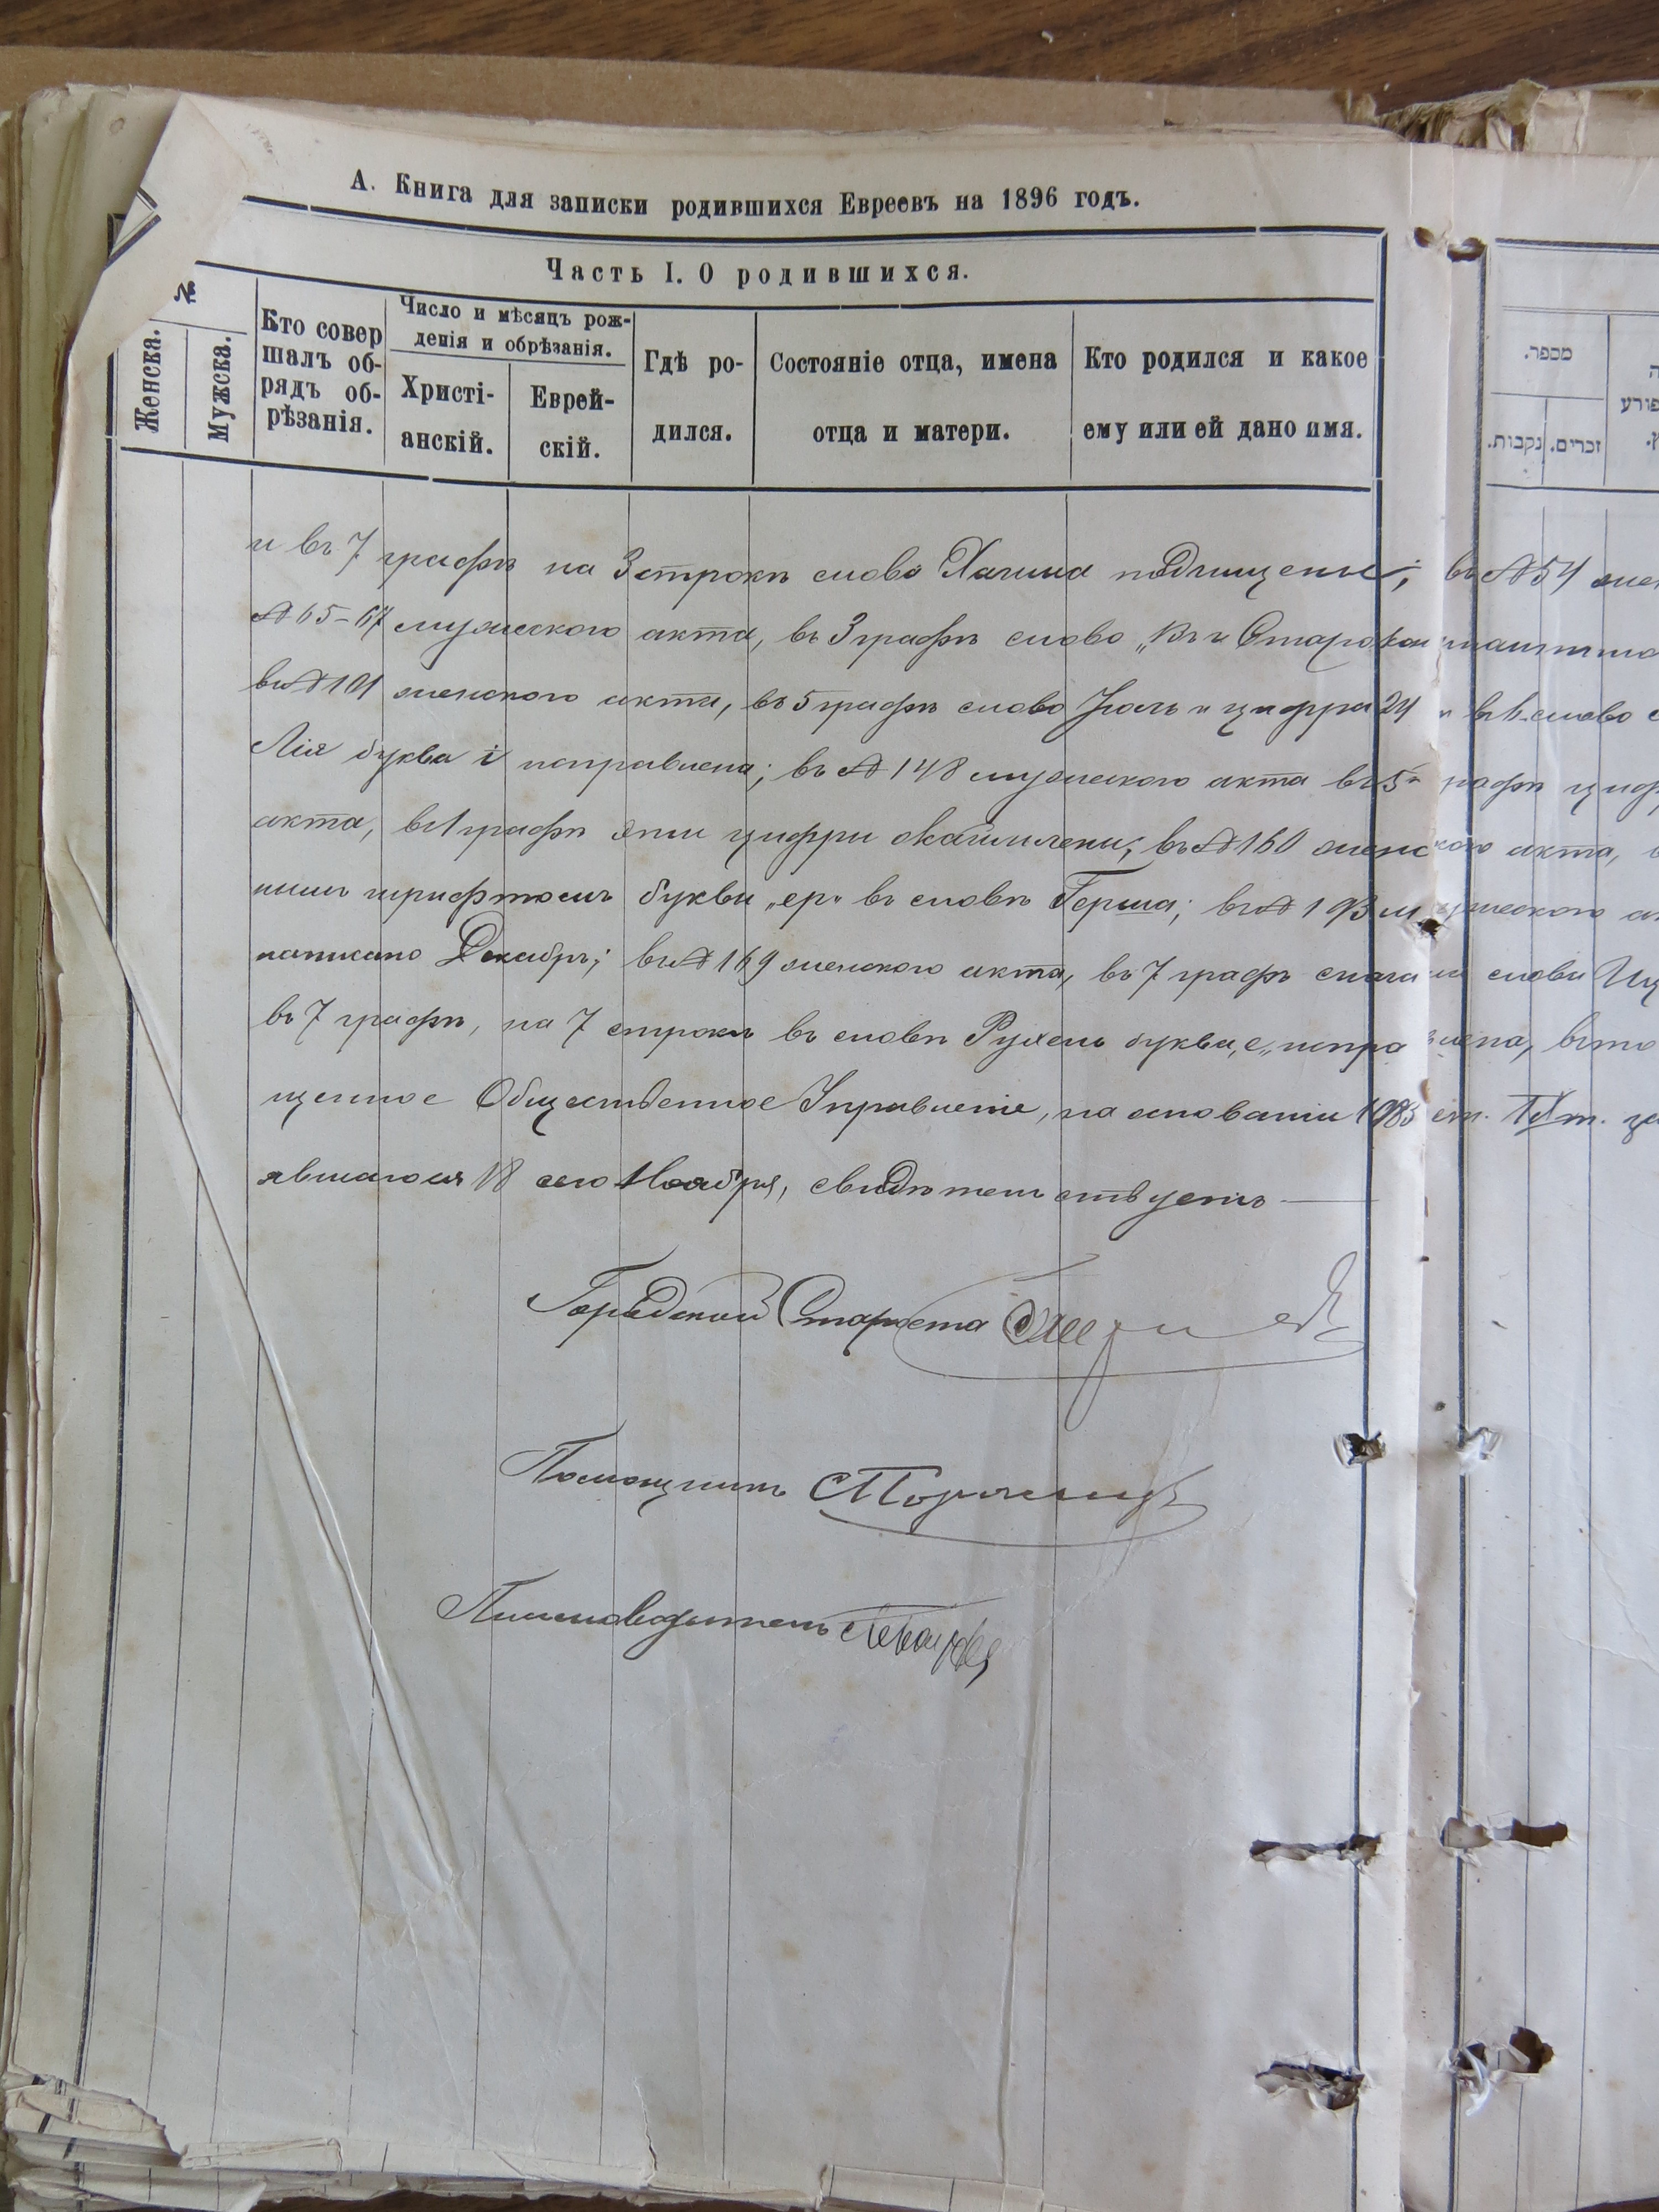 А. Книга для записки родившихся Евреевъ на 1896 годъ.
Часть I. О родившихся.
№
Женска.
Мужска.
Кто совер
шалъ об-
рядъ об-
рѣзанія.
Число и мѣсяцъ рож-
денія и обрѣзанія.
Христі-
анскій.
Еврей-
скій.
Гдѣ ро-
дился.
Состояніе отца, имена
отца и матери.
Кто родился и какое
ему или ей дано имя.
и въ 7 графѣ на 3 строкѣ слово Хаима подчищены; въ № 54
№ 65-67 мужескаго акта, въ 3 графѣ слово „въ г. Старокон
въ № 101 женскаго акта, въ 5 графѣ слово Іюль и цифра 24 и въ 6 слово
Лія буква і исправлена; въ № 148 мужескаго акта въ 5-й графѣ
акта, въ 1 графѣ эти цифри окаймлены; въ № 160 женскаго акта,
нимъ шрифтомъ букви „ер" въ словѣ Герша; въ № 193 мужескаго
написано Декабрь; въ № 169 женскаго акта, въ 7 графѣ слова
въ 7 графѣ, на 7 строкѣ въ словѣ Рухель буква „е„ исправлена,
щенное Общественное Управленіе, на основаніи 1083 ст. IX т.
явшагося 18 сего Ноября, свидѣтельствуетъ
Городской Староста
Помощникъ
Письмоводитель
מספר.
נקבות.
זכרים.